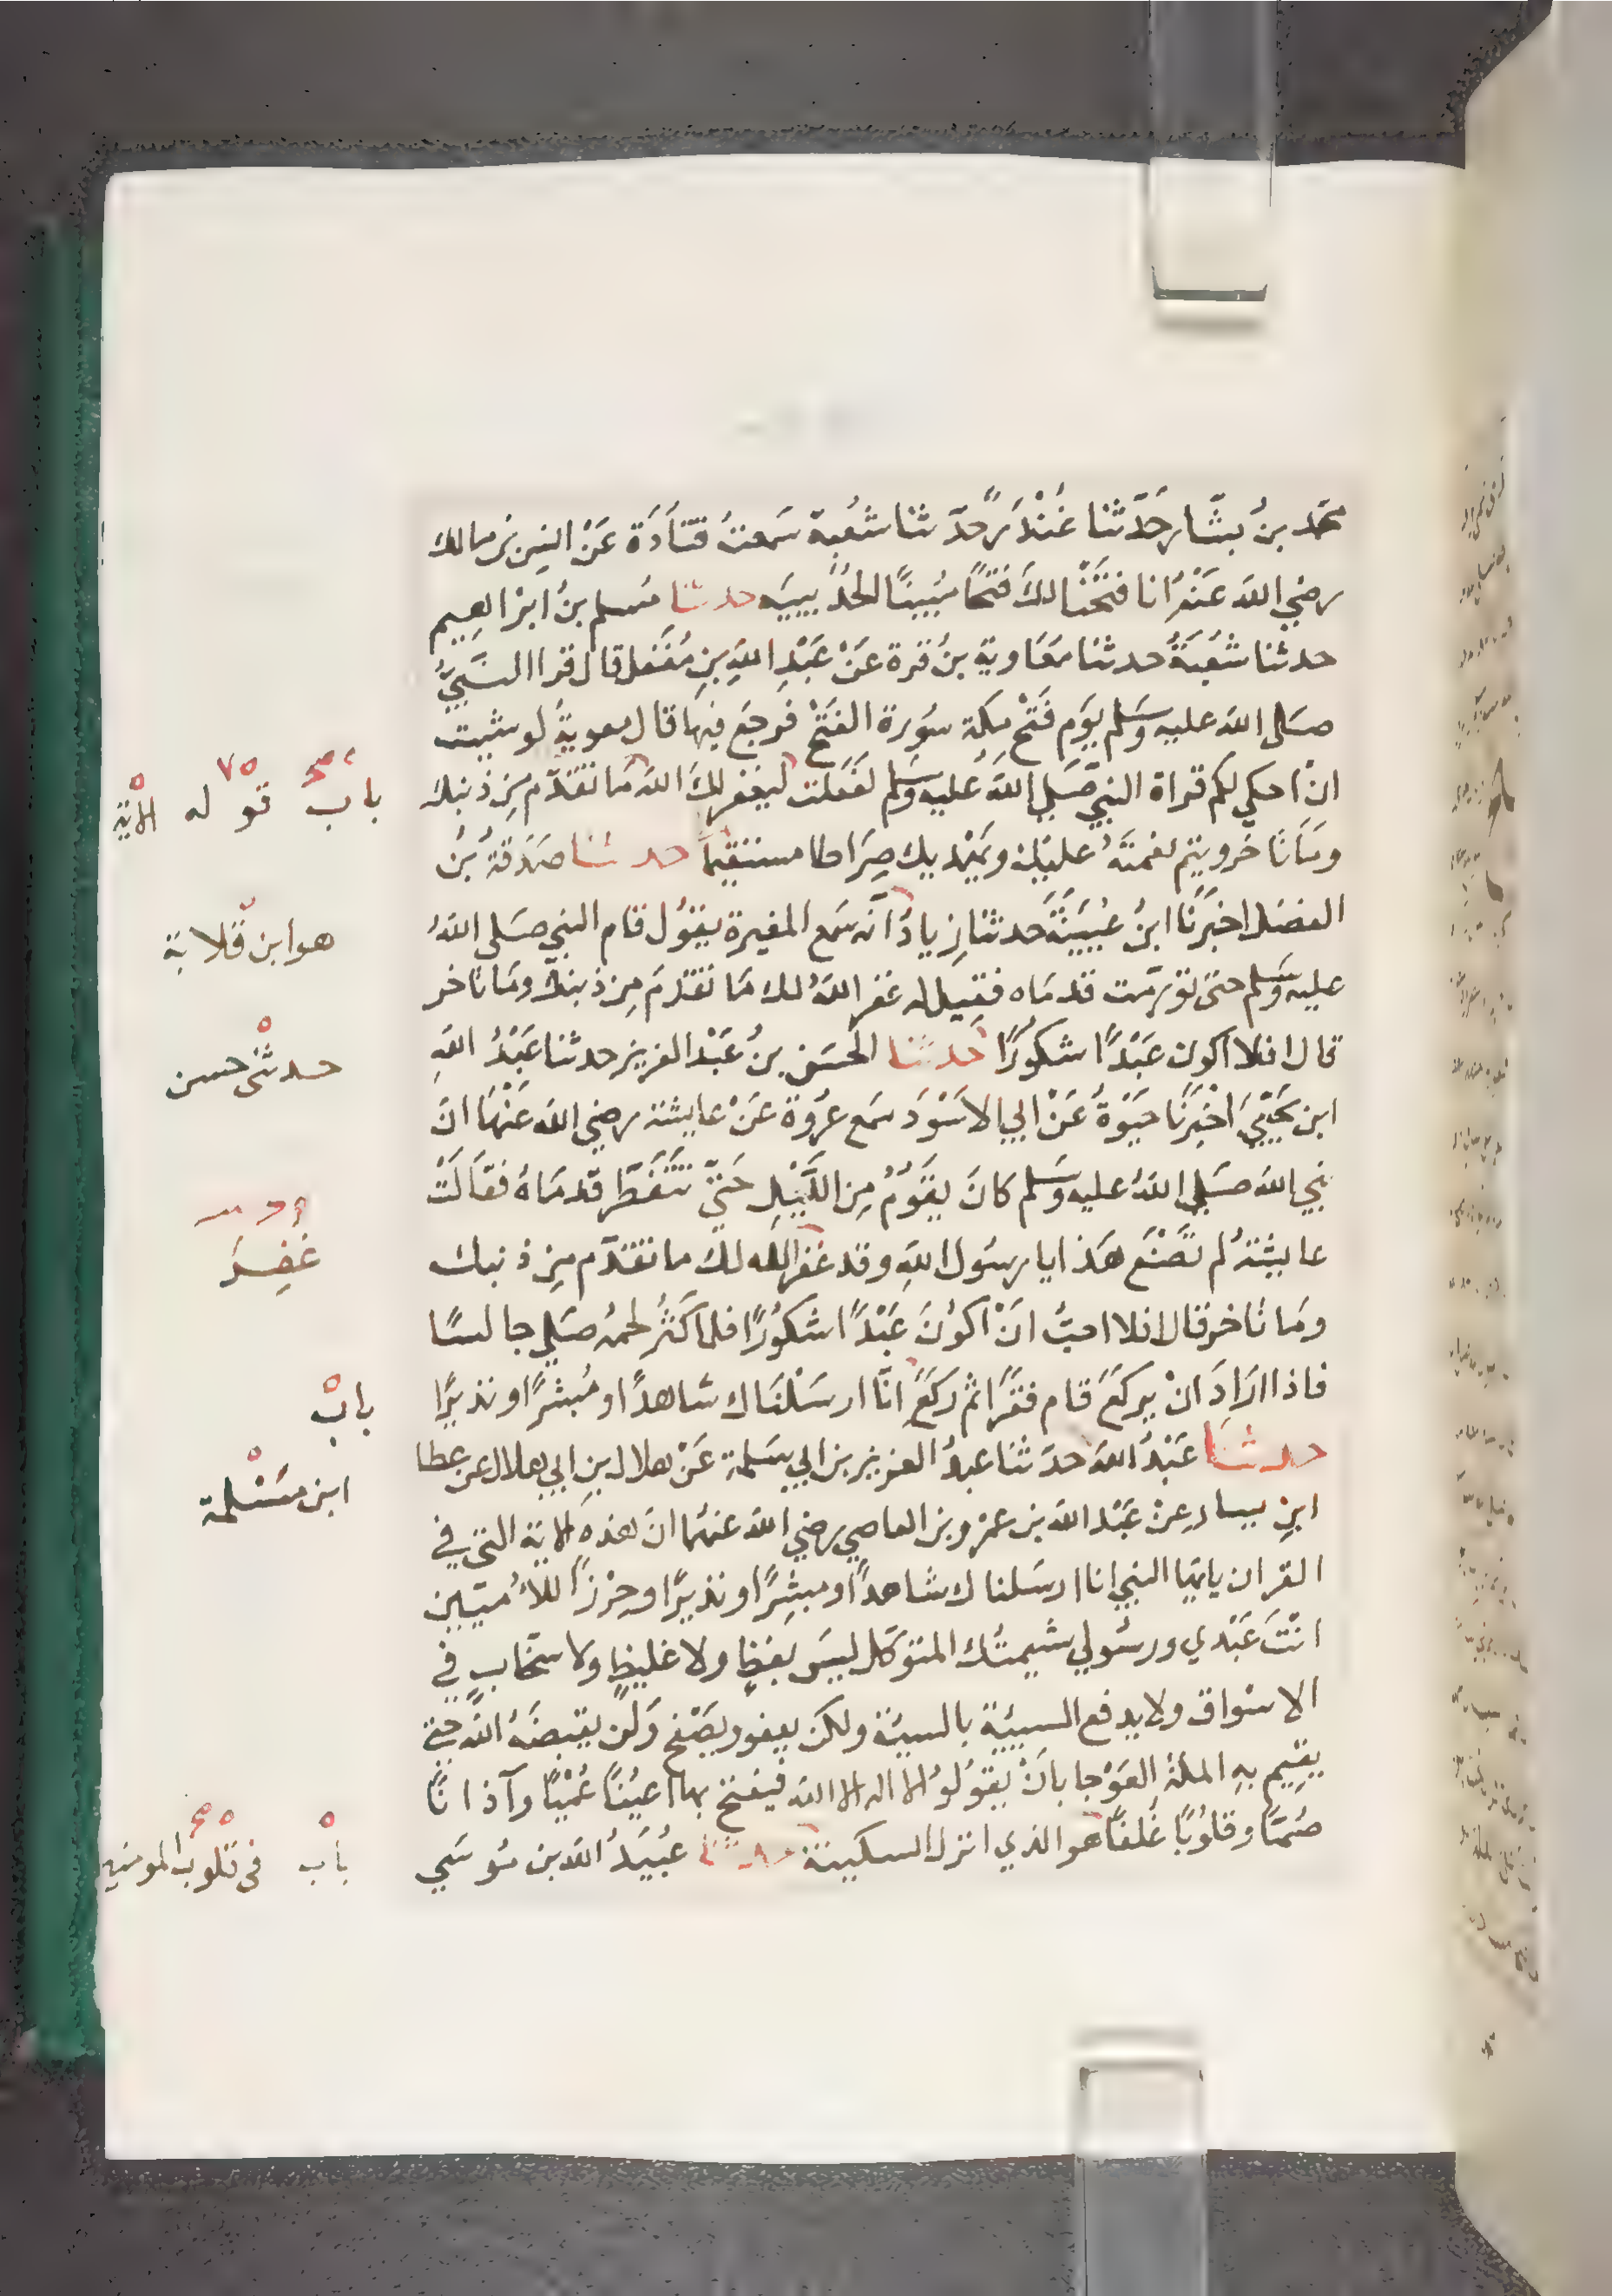 محمد بنُ بشَّار حَدَّثنا غُنْدَرٌ حدّثنا شعُبة سَمعتُ قتَادَة عَنْ انسِ بن مالك
رضي الله عَنْهُ انا فتَحْنا لكَ فَتْحًا مُبينًا الحُدُ يبيَه حدثنا مُسلم بنُ ابرَاهيم
حدثنا شعُبَةُ حدثنا معَاوية بنُ قرة عَنْ عَبْدِ اللهِ بنِ مُغَفل قال قرا النَبيُّ
صَلى الله عليه وسَلم يوَم فَتْح مكة سوُرة الفَتْح فرجعَ فيهَا قال معويةُ لو شيت
انْ احكي لكم قراة النبي صَلى اللهُ عليه وسَلم لفَعَلت ليَغفر لكَ الله مَا تقدّم مِن ذنبك
ومَا تَاخر ويتم نعْمتَهُ عليْك ويَهْديك صِرَاطا مستقيمًا حدثنا صَدَقةُ بنُ
الفضل اخبَرَنَا ابنُ عُيَيْنَةَ حدثنا زِيادٌ انّه سَمع المغيرة يقوُل قام النبي صَلى اللهُ
عليه وسَلم حتى تورّمت قدمَاه فقِيل له غفر اللهُ لك مَا تقدّمَ مِن ذنبك ومَا تاخر
قال افلا اكون عَبْدًا شكورًا حدثنا الحسَن بنُ عَبْد العزيز حدثنا عَبْدُ اللهِ
ابن يَحْيىَ اخْبَرنَا حَيْوَةُ عَنْ ابي الاسَوْدَ سَمع عرُوة عَنْ عايشة رضي الله عَنْهَا انَ
نبي الله صَلى اللهُ عليه وسَلم كانَ يقوُمُ مِن اللَّيْلِ حَتىّ تتَفَطَّر قَدمَاهُ فقَالَتْ
عايشَةُ لم تصْنَع هَذا يا رسَول اللهِ وقد غفر الله لكَ ما تقدّم مِن ذنبك
ومَا تاخر قال افلا احبُ انَ اكوُنَ عَبْدًا شكوُرًا فلما كَثُر لحمُه صَلي جالسًا
فاذا ارَادَ انْ يركعَ قام فقرَا ثم رَكعَ انَّا ارسَلْنَاك شاهدًا ومُبشرًا ونذيرًا
حدثنا عَبْدُ الله حدَثنَا عبدُ العزيز بن ابي سَلمة عَنْ هلال بنِ ابي هلال عن عطا
ابنِ يسار عنْ عَبْد الله بن عمْرو بن العاصي رضي الله عنهُما انَ هذه الاية التي في
القران يايهَا النبي انا ارسَلناك شاهدًا ومبشِرًا ونذيرًا وحِرْزًا للأُميّين
انْتَ عَبْدي ورسُولي سَميتُك المتوكل ليسَ بفظٍ ولا غليظٍ ولا سخابٍ في
الاسْواق ولا يدفع السيئة بالسيئة ولكن يعفو ويصْفح وَلن يقبضَهُ اللهُ حتى
يقيم به الملةَ العَوْجا بانْ يقوُلوُا لا اله الا الله فيفتح بها اعيُنًا عُمْيًا وآذانًا
صُمًّا وقلوُبًا غُلفًا هو الذي انزل السكينة حدثنا عُبَيدُ الله بن مُوسَي
باب قوله الاية
هو ابن قلابة
حدثني حسن
غُفِرَ
بابٌ
ابن مَسْلمة
باب في قلوب المومنين